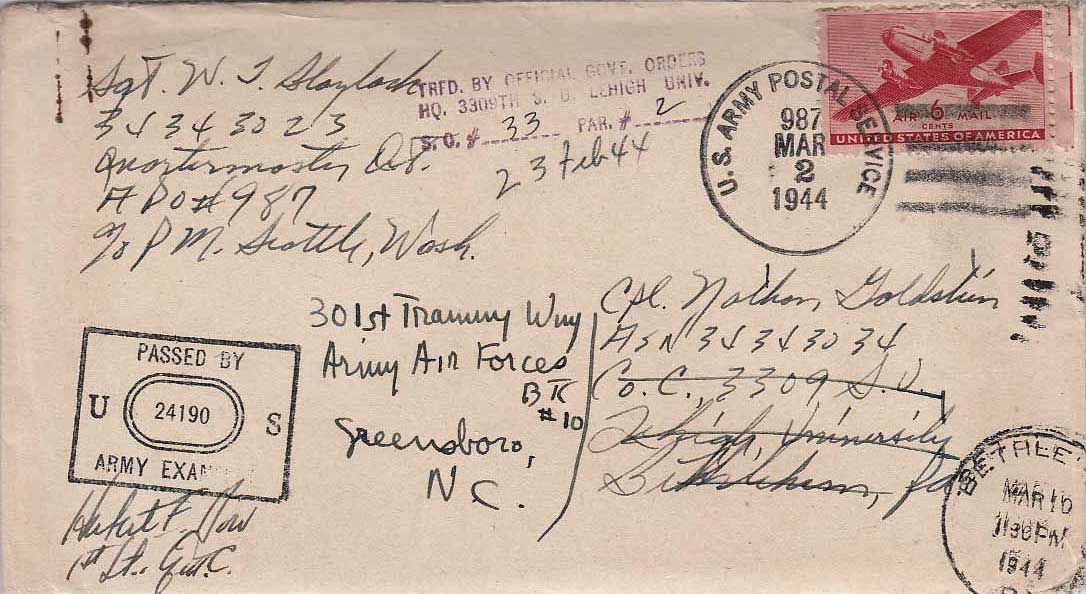 Sgt. W. T. Slaylock
34343023
Quartermaster Det.
APO #987
c/o P M. Seattle, Wash.
TRFD. BY OFFICIAL GOVT. ORDERS
HQ. 3309TH S. U. LEHIGH UNIV.
S. O. # 33 PAR. # 2
23 Feb 44
U.S. ARMY POSTAL SERVICE
987
MAR
2
1944
AIR 6 MAIL
CENTS
UNITED STATES OF AMERICA
PASSED BY
U 24190 S
ARMY EXAM
Herbert F.
1st Lt. Q.M.C.
301st Training Wing
Army Air Forces
BTC
#10
Greensboro,
N C.
Cpl. Nathan Goldstein
ASN 34343034
Co. C., 3309 S.U.
Lehigh University
Bethlehem, Pa
BETHLEHE
MAR 16
11 30 PM
1944